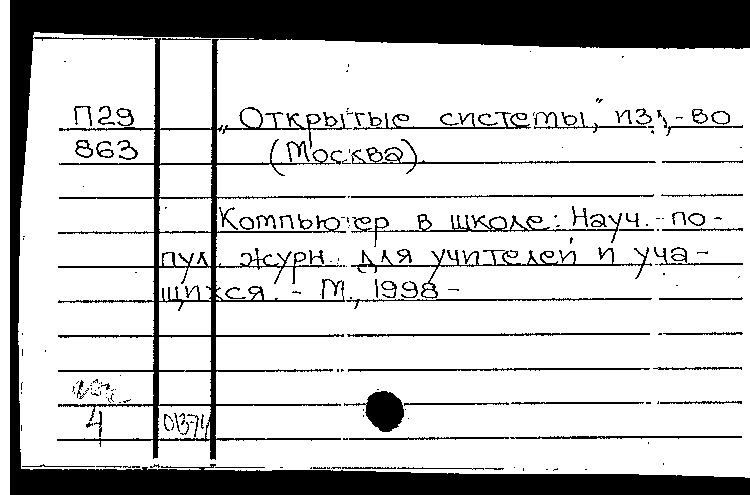 П29 „Открытые системы,” изд-во
863 (Москва).
Компьютер в школе: Науч.-по-
пул. журн. для учителей и уча-
щихся. - М., 1998 -
4 01374